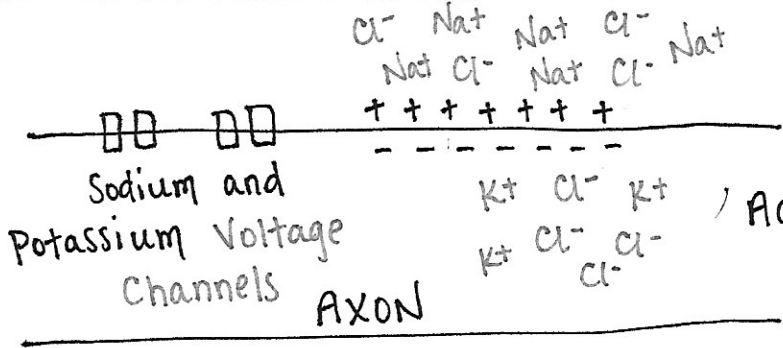 Cl- Na+ Na+ Cl-
Na+ Cl- Na+ Cl- Na+
+ + + + + + +
- - - - - - -
Sodium and
Potassium Voltage
Channels
K+ Cl- K+
K+ Cl- Cl-
Cl-
AXON